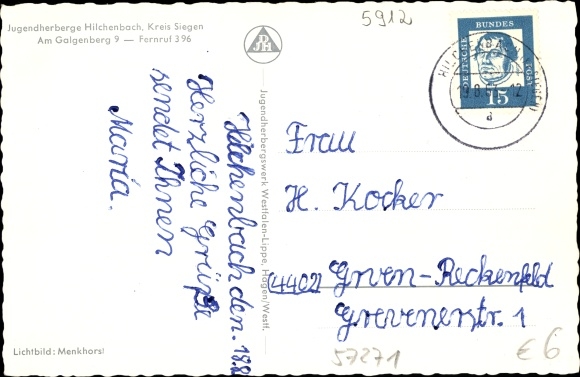 Jugendherberge Hilchenbach, Kreis Siegen
Am Galgenberg 9 — Fernruf 396
DJH
5912
DEUTSCHE
BUNDES
POST
15
a
Hilchenbach den. 18.8
Herzliche Grüße
sendet Ihnen
Maria.
Jugendherbergswerk Westfalen-Lippe, Hagen/Westf.
Frau
H. Kocker
(4402) Grven-Reckenfeld
Grevenerstr. 1
57271
€ 6
Lichtbild: Menkhorst